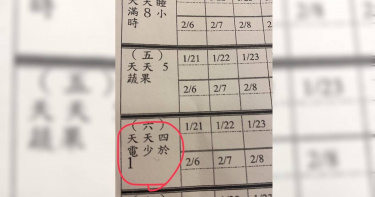 天天睡
滿8小
時
2/6 2/7 2/8
(五) 1/21 1/22 1/23
天天5
蔬果
2/6 2/7 2/8
(六) 1/21 1/22 1/23
天天四
電少於
1
2/6 2/7 2/8